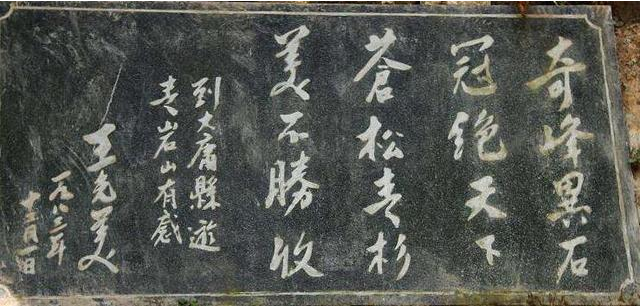 奇峰異石
冠绝天下
蒼松青杉
美不勝收
到大庸縣遊
青岩山有感
王光美
一九八二年
十二月一日